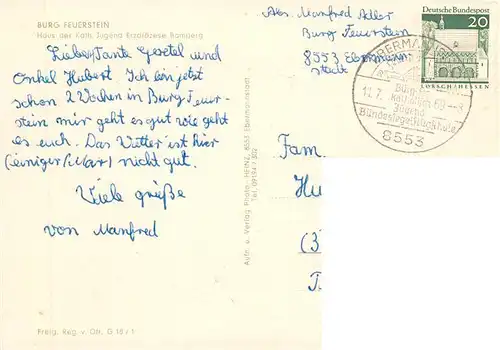 BURG FEUERSTEIN
Haus der Kath. Jugend Erzdiözese Bamberg
Liebe Tante Gretel und
Onkel Hubert. Ich bin jetzt
schon 2 Wochen in Burg Feuer-
stein mir geht es gut wie geht
es euch. Das Wetter ist hier
(einiger ) nicht gut.
Viele grüße
von Manfred
Freig. Reg. v. Ofr. G 18 / 1
Aufn. u. Verlag Photo-HEINZ, 8553 Ebermannstadt
Tel. 09194 / 302
Abs. Manfred Adler
Burg Feuerstein
8553 Ebermann
stadt
Deutsche Bundespost
20
LORSCH/HESSEN
EBERMANNST
Burg
13.7. 69-8
Kath.
Jugend
Bundesjugendschule
8553
Fam
Hu
(3
T